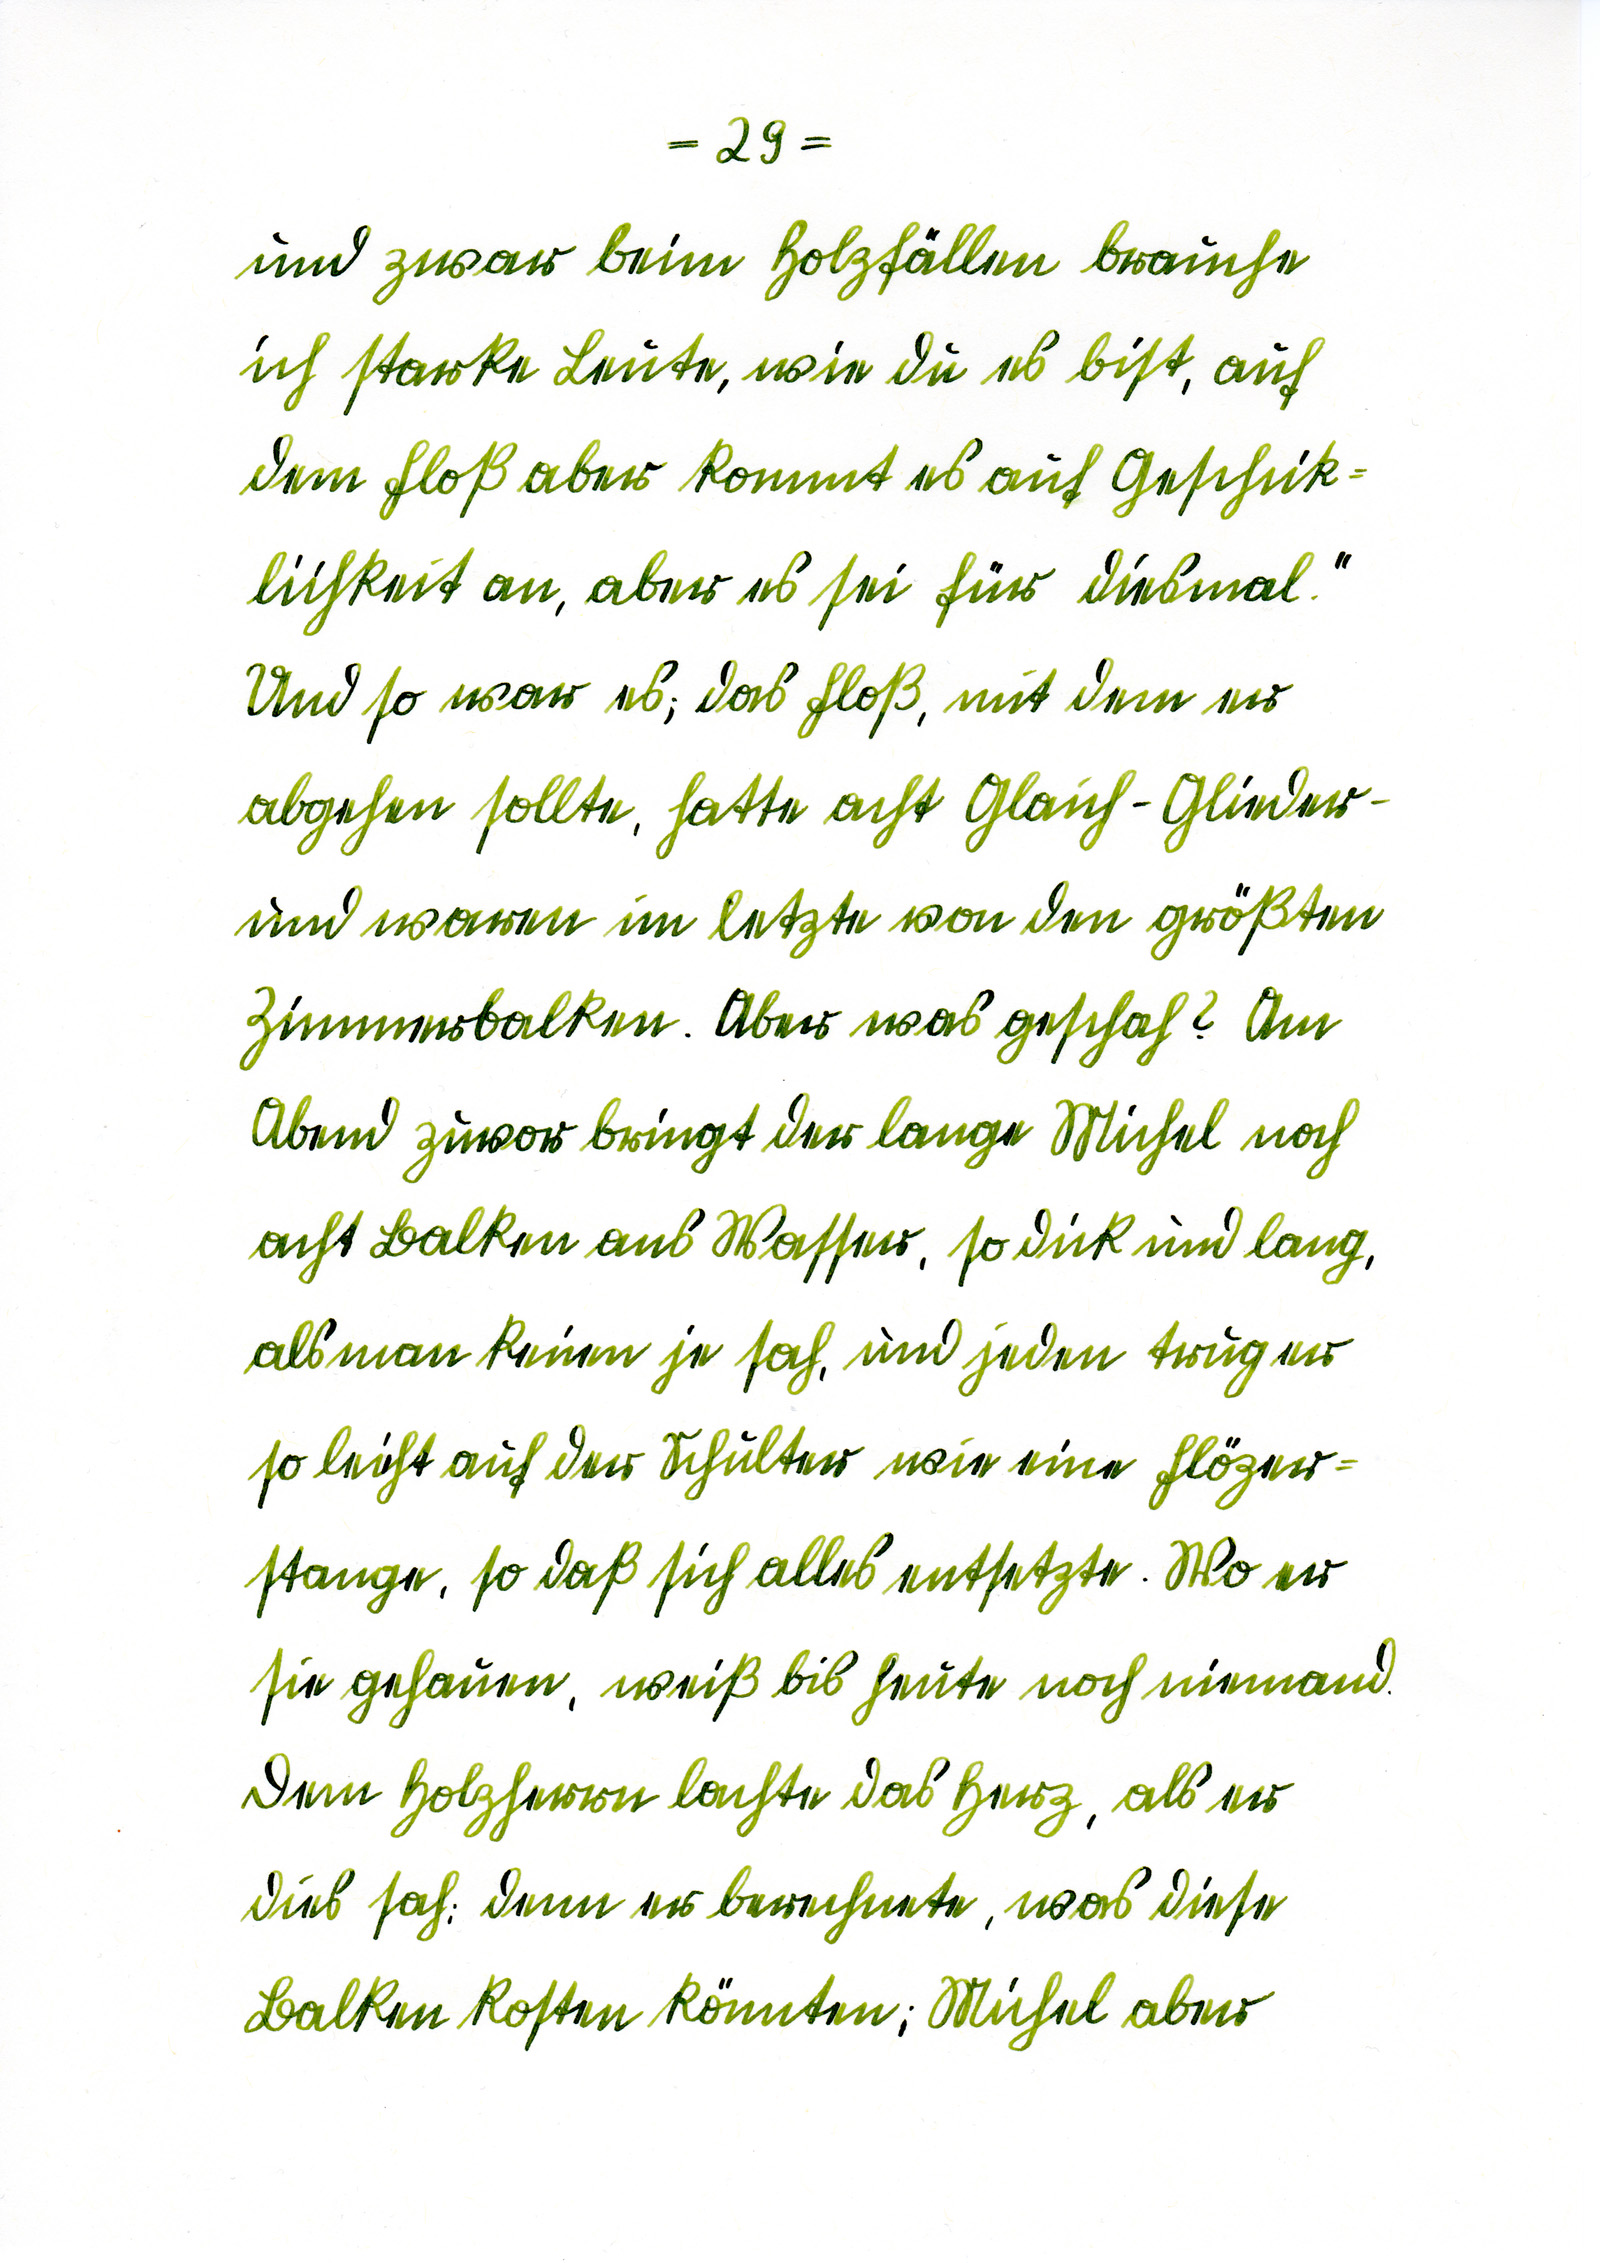 = 29 =
und zwar beim Holzfällen brauche
ich starke Leute, wie du es bist, auf
dem Floß aber kommt es auf Geschik=
lichkeit an, aber es sei für diesmal."
Und so war es; das Floß, mit dem er
abgehen sollte, hatte acht Glaich - Glieder -
und waren im letzte von den größten
Zimmerbalken. Aber was geschah? Am
Abend zuvor bringt der lange Michel noch
acht Balken ans Wasser, so dick und lang,
als man keinen je sah, und jeden trug er
so leicht auf der Schulter wie eine Flözer=
stange, so daß sich alles entsetzte. Wo er
sie gehauen, weiß bis heute noch niemand.
Dem Holzherrn lachte das Herz, als er
dies sah; denn er berechnete, was diese
Balken kosten könnten; Michel aber